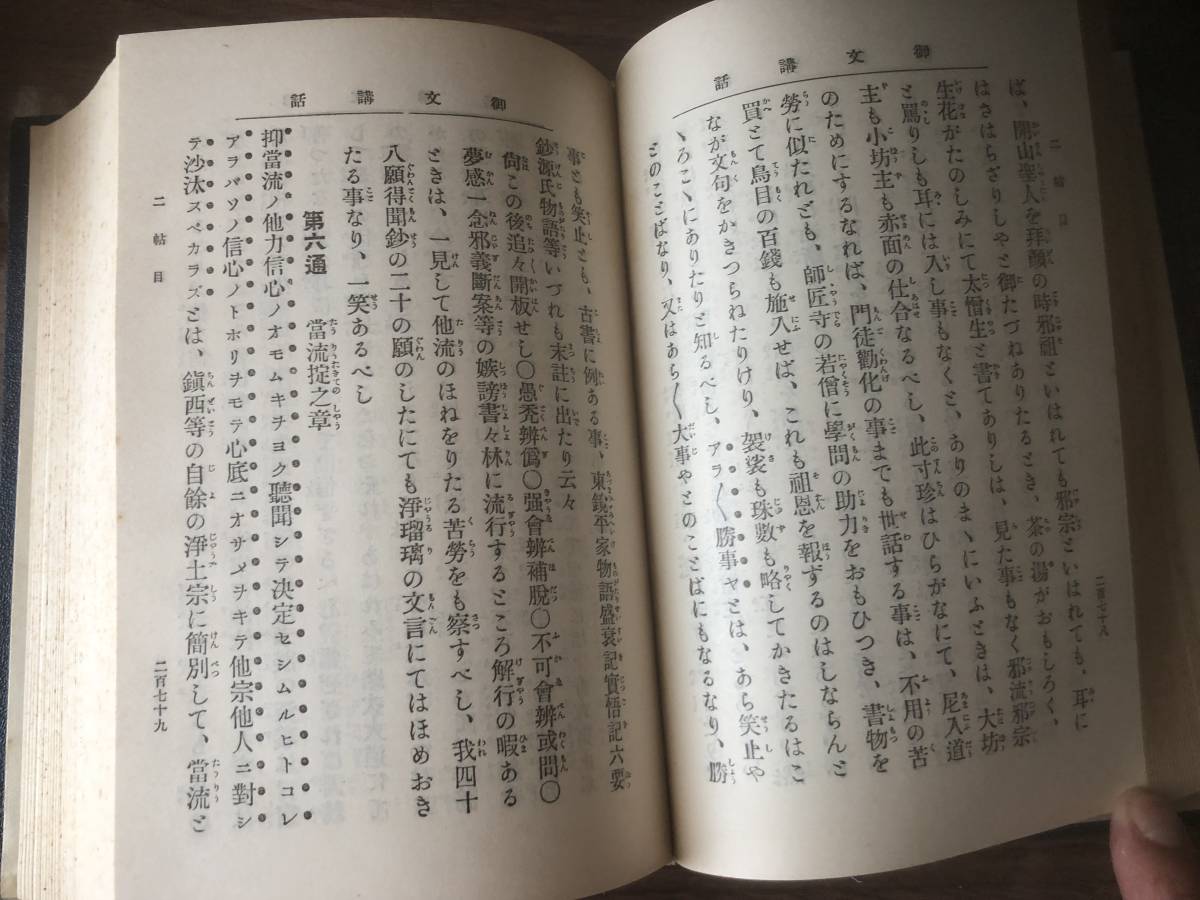 御文講話
二帖目
二百七十八
ば、開山聖人を拜顔の時邪祖といはれても邪宗といはれても、耳に
はさはらざりしやと御たづねありたるとき、茶の湯がおもしろく、
生花がたのしみにて太懵生と書てありしは、見た事もなく邪流邪宗
と罵りしも耳には入し事もなくと、ありのまゝにいふときは、大坊
主も小坊主も赤面の仕合なるべし、此寸珍はひらがなにて、尼入道
のためにするなれば、門徒勸化の事までも世話する事は、不用の苦
勞に似たれども、師匠寺の若僧に學問の助力をおもひつき、書物を
買とて鳥目の百錢も施入せば、これも祖恩を報ずるのはしならんと
なが文句をかきつらねたりけり、袈裟も珠數も略してかきたるはこ
ゝろこゝにありたりと知るべし、アラ〱勝事ヤとは、あら笑止や
どのことばなり、又はあら〱大事やとのことばにもなるなり、勝
御文講話
事とも笑止とも、古書に例ある事、東鏡平家物語盛衰記實悟記六要
鈔源氏物語等いづれも末註に出たり云々
尙この後追々開板せし〇愚禿辨僞〇强會辨補脫〇不可會辨或問〇
夢感一念邪義斷案等の嫉謗書々林に流行するところ解行の暇ある
ときは、一見して他流のほねをりたる苦勞をも察すべし、我四十
八願得聞鈔の二十の願のしたにても淨瑠璃の文言にてはほめおき
たる事なり、一笑あるべし
第六通 當流掟之章
抑當流ノ他力信心ノオモムキヲヨク聽聞シテ決定セシムルヒトコレ
アラバソノ信心ノトホリヲモテ心底ニオサメヲキテ他宗他人ニ對シ
テ沙汰スベカラズとは、鎭西等の自餘の淨土宗に簡別して、當流と
二帖目
二百七十九